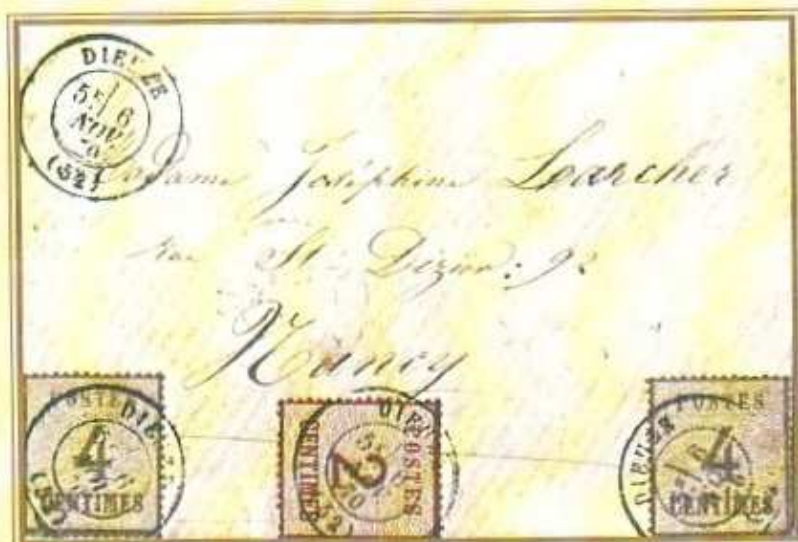 DIEUZE
5E/ 6
NOV.
70
(52)
Madame Joséphine Larcher
rue St. Dizier: 92
Nancy
POSTES
4
CENTIMES
DIEUZE
POSTES
2
CENTIMES
DIEUZE
(52)
POSTES
4
CENTIMES
DIEUZE